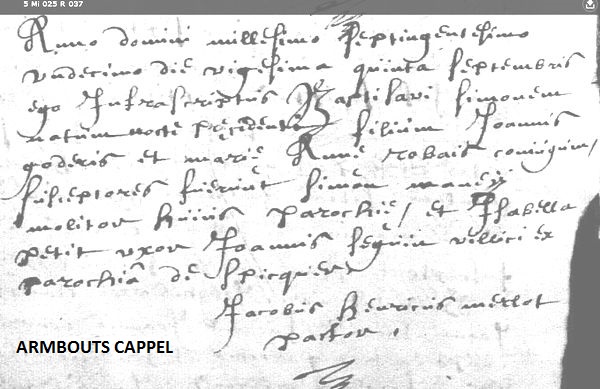 5 Mi 025 R 037
Anno domini millesimo Septingentesimo
vndecimo die vigesima quinta septembris
ego Infrascriptus Baptisavi simonem
natum nocte precedenti filium Joannis
goderis et mariē Annē robais coniugum,
suseptores fuerunt simon maneij
molitor huius parochiē, et Isabella
petit vxor Joannis seguin villici ex
parochiâ de Spicquer
Jacobus Henricus merlot
pastor.
ARMBOUTS CAPPEL